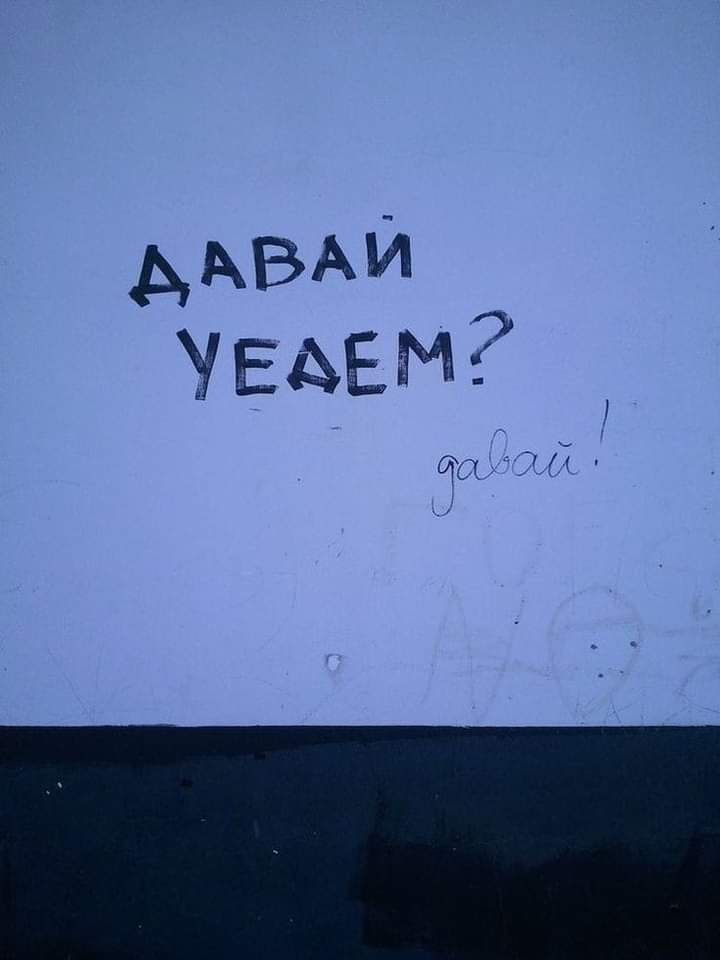 ДАВАЙ
УЕДЕМ?
давай!